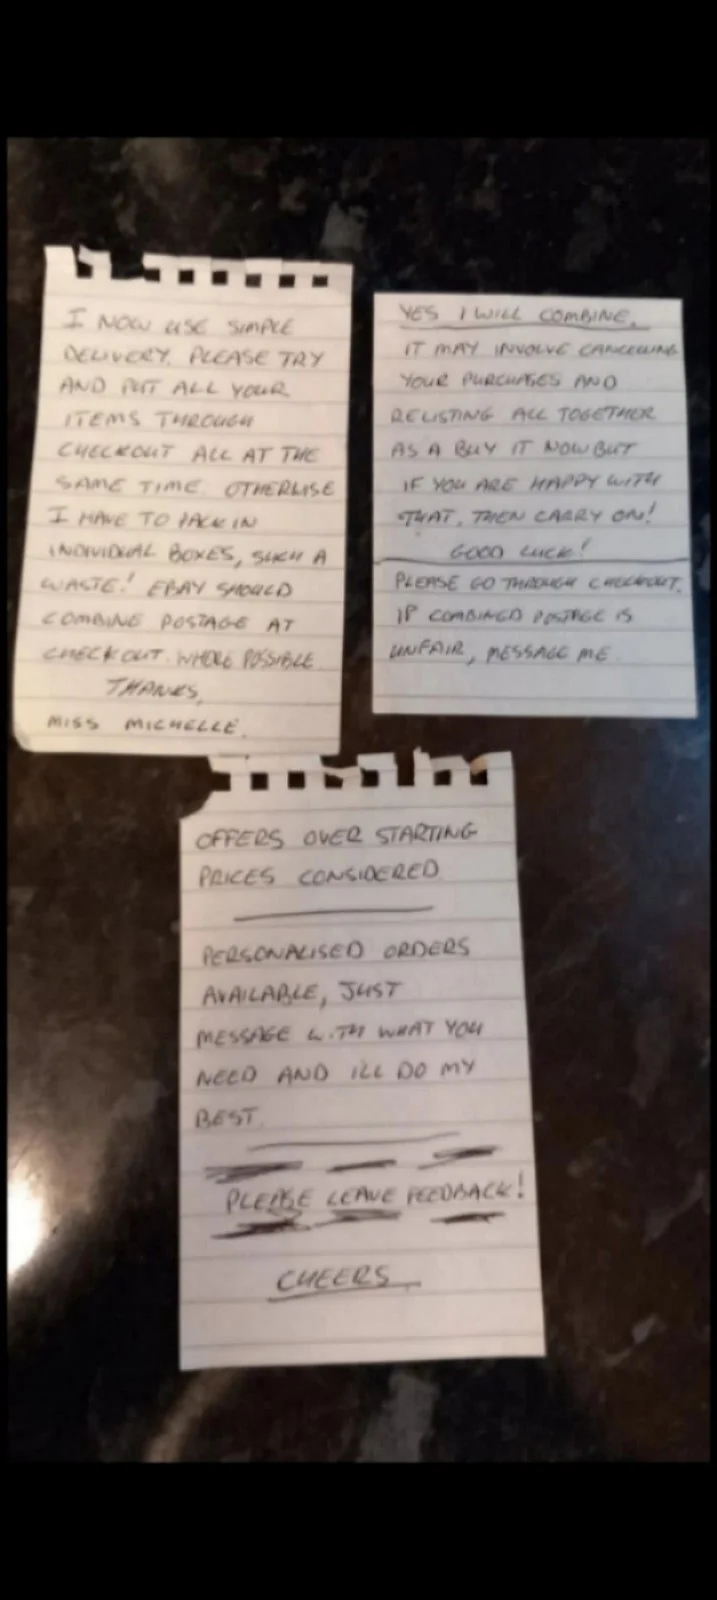 I NOW USE SIMPLE
DELIVERY. PLEASE TRY
AND PUT ALL YOUR
ITEMS THROUGH
CHECKOUT ALL AT THE
SAME TIME. OTHERWISE
I HAVE TO PACK IN
INDIVIDUAL BOXES, SUCH A
WASTE! EBAY SHOULD
COMBINE POSTAGE AT
CHECKOUT. WHERE POSSIBLE.
THANKS,
MISS MICHELLE.
YES I WILL COMBINE.
IT MAY INVOLVE CANCELLING
YOUR PURCHASES AND
RELISTING ALL TOGETHER
AS A BUY IT NOW BUT
IF YOU ARE HAPPY WITH
THAT, THEN CARRY ON!
GOOD LUCK!
PLEASE GO THROUGH CHECKOUT.
IF COMBINED POSTAGE IS
UNFAIR, MESSAGE ME
OFFERS OVER STARTING
PRICES CONSIDERED
PERSONALISED ORDERS
AVAILABLE, JUST
MESSAGE WITH WHAT YOU
NEED AND ILL DO MY
BEST.
PLEASE LEAVE FEEDBACK!
CHEERS.